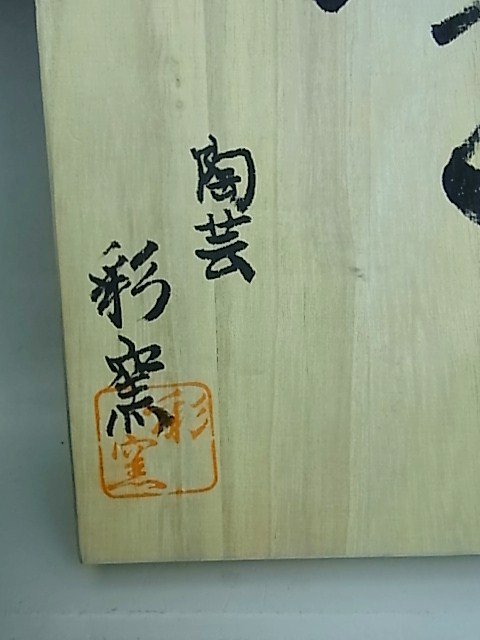 陶芸
彩窯
彩窯